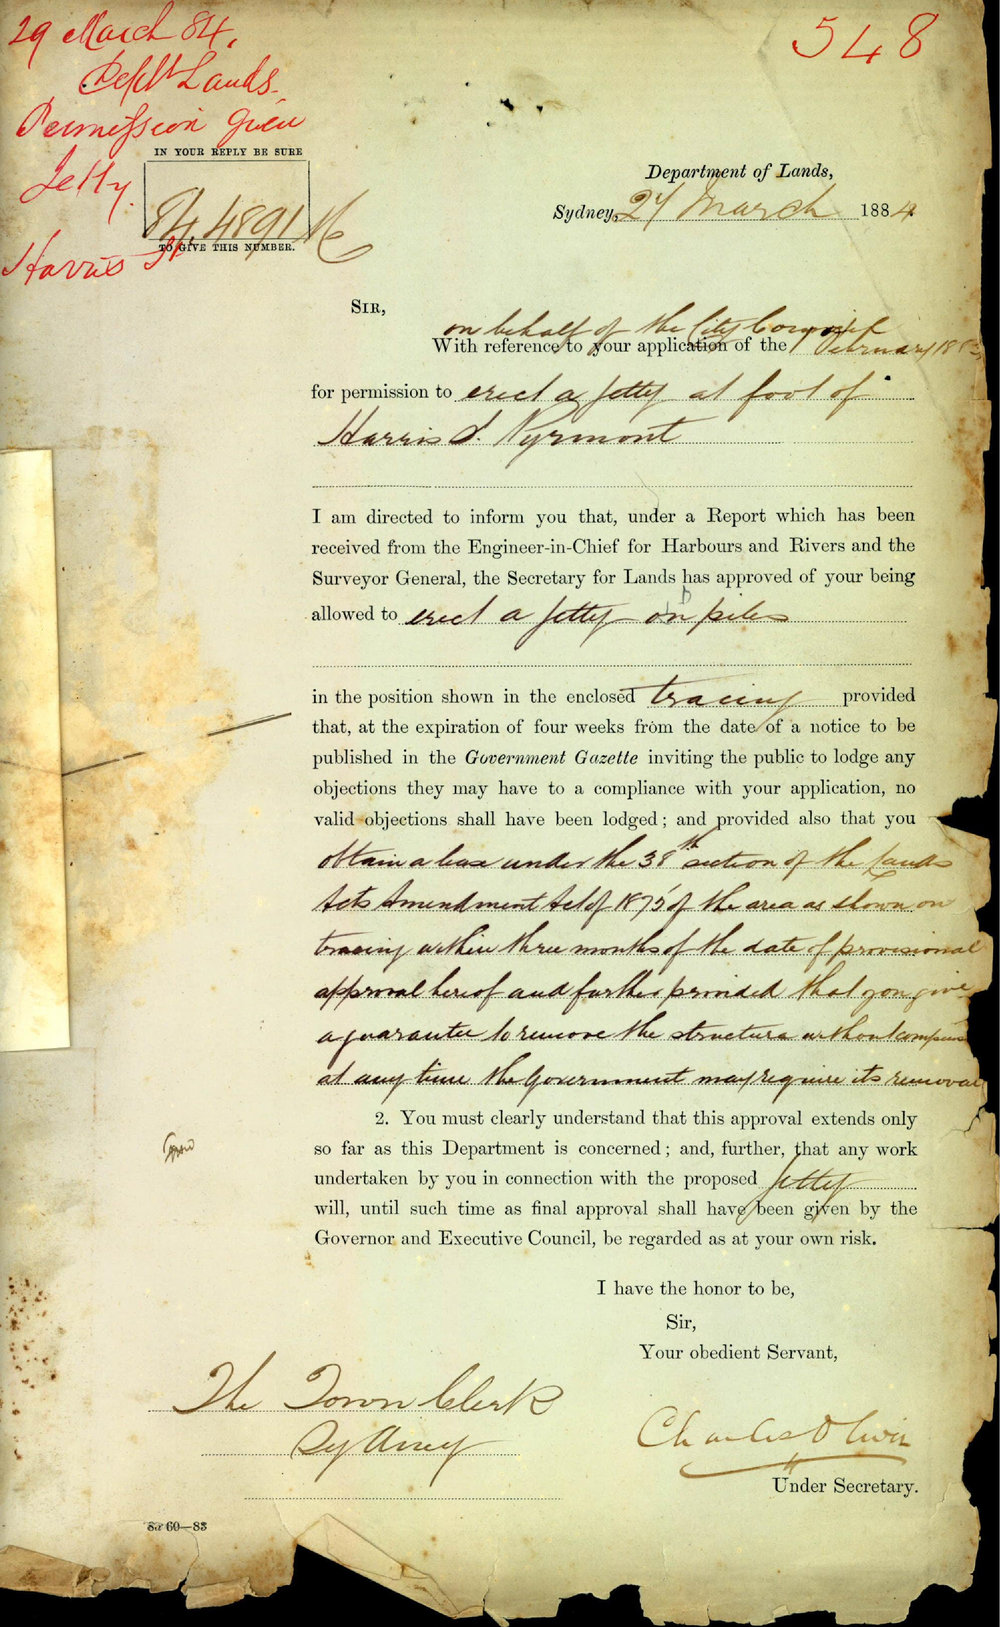 29 March 84.
548
Dept Lands.
Permission given
Jetty.
Harris St
IN YOUR REPLY BE SURE
84.4891
TO GIVE THIS NUMBER.
Department of Lands,
Sydney, 27 March 1884
SIR,
on behalf of the City Council
With reference to your application of the February 188
for permission to erect a Jetty at foot of
Harris S. Pyrmont
I am directed to inform you that, under a Report which has been
received from the Engineer-in-Chief for Harbours and Rivers and the
Surveyor General, the Secretary for Lands has approved of your being
allowed to erect a Jetty on piles
in the position shown in the enclosed tracing provided
that, at the expiration of four weeks from the date of a notice to be
published in the Government Gazette inviting the public to lodge any
objections they may have to a compliance with your application, no
valid objections shall have been lodged; and provided also that you
obtain a lease under the 38th section of the Lands
Acts Amendment Act of 1875 of the area as shown on
tracing within three months of the date of provisional
approval hereof and further provided that you give
a guarantee to remove the structure without
at any time the Government may require its removal
2. You must clearly understand that this approval extends only
so far as this Department is concerned; and, further, that any work
undertaken by you in connection with the proposed Jetty
will, until such time as final approval shall have been given by the
Governor and Executive Council, be regarded as at your own risk.
I have the honor to be,
Sir,
Your obedient Servant,
The Town Clerk
Sydney
Charles Oliver
Under Secretary.
60—83